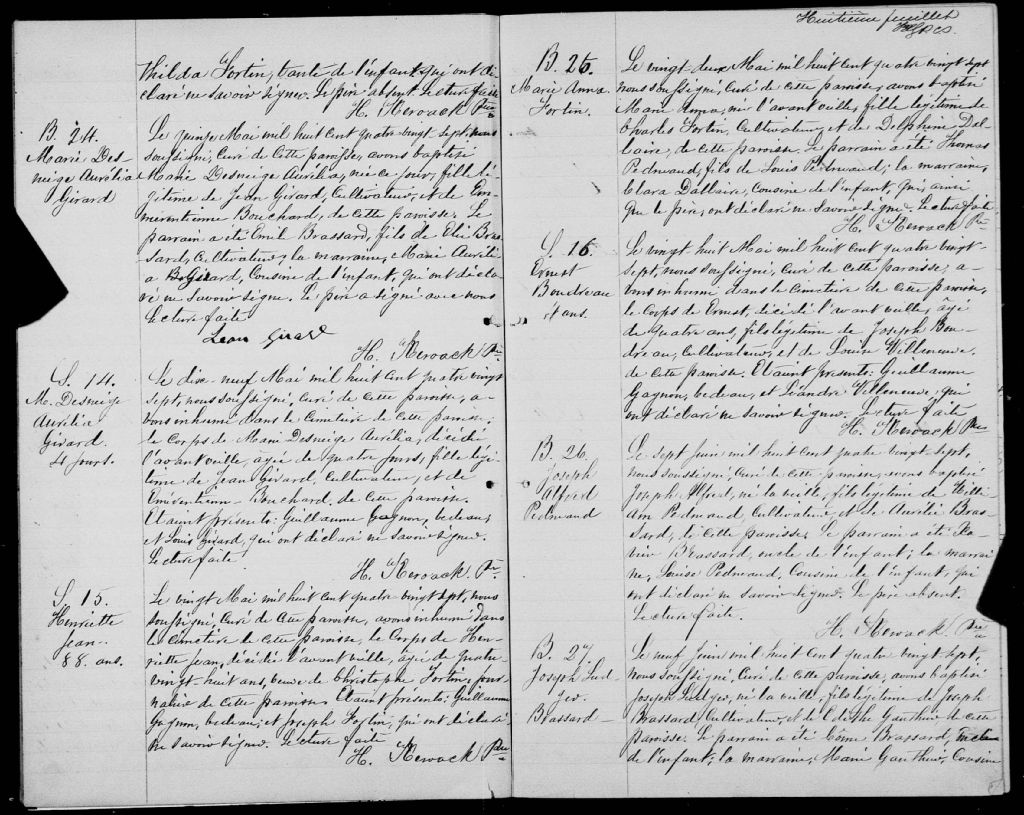 thilda Fortin, tante de l'enfant qui ont dé-
claré ne savoir signer. Le père absent. Lecture faite
H. Kerouack Ptre
B. 24.
Marie Des-
neige Aurélia
Girard
Le quinze Mai mil huit cent quatre vingt sept, nous
soussigné, Curé de cette paroisse, avons baptisé
Marie Desneige Aurélia, née ce jour, fille lé-
gitime de Jean Girard, Cultivateur, et de Em-
merentienne Bouchard, de cette paroisse. Le
parrain a été Emil Brassard, fils de Elie Bras-
sard, Cultivateur; la marraine, Marie Auréli-
a Girard, Cousine de l'enfant, qui ont décla-
ré ne savoir signer. Le père a signé avec nous
Lecture faite
Jean Girard
H. Kerouack Ptre
S. 14.
M. Desneige
Aurélia
Girard.
4 jours.
Le dix-neuf Mai mil huit cent quatre vingt
sept, nous soussigné, Curé de cette paroisse, a-
vons inhumé dans le Cimetière de cette paroisse,
le Corps de Marie Desneige Aurélia, décédé
l'avant veille, agée de quatre jours, fille légi-
time de Jean Girard, Cultivateur, et de
Bouchard, de cette paroisse.
Etaient présents: Guillaume Gagnon, bedeau,
et Louis Girard, qui ont déclaré ne savoir signer.
Lecture faite.
H. Kerouack. Ptre
S. 15.
Henriette
Jean.
88. ans.
Le vingt Mai mil huit cent quatre vingt sept, nous
soussigné, Curé de cette paroisse, avons inhumé dans
le Cimetière de cette paroisse, le Corps de Hen-
riette Jean, décédée l'avant veille, âgée de quatre
vingt-huit ans, veuve de Christophe Fortin, jour-
nalier de cette paroisse. Etaient présents: Guillaume
Gagnon, bedeau, et Joseph Fortin, qui ont déclaré
ne savoir signer. Lecture faite
H. Kerouack Ptre
Huitième feuillet
B. 25.
Marie Anna
Fortin.
Le vingt-deux Mai mil huit cent quatre vingt sept
nous soussigné, curé de cette paroisse, avons baptisé
Marie Anna, née l'avant veille, fille légitime de
Charles Fortin, Cultivateur, et de Delphine Dal-
laire, de cette paroisse. Le parrain a été Thomas
Pedneaud, fils de Louis Pedneaud; la marraine,
Clara Dallaire, cousine de l'enfant, qui, ainsi
que le père, ont déclaré ne savoir signer. Lecture faite
H. Kerouack Ptre
S. 16.
Ernest
Boudreau
4 ans.
Le vingt huit Mai mil huit cent quatre vingt-
sept, nous soussigné, Curé de cette paroisse, a-
vons inhumé dans le Cimetière de cette paroisse,
le Corps de Ernest, décédé l'avant veille, âgé
de quatre ans, fils légitime de Joseph Bou-
dreau, Cultivateur, et de Louise Villeneuve,
de cette paroisse. Etaient présents: Guillaume
Gagnon, bedeau, et Léandre Villeneuve, qui
ont déclaré ne savoir signer. Lecture faite
H. Kerouack Ptre
B. 26.
Joseph
Alfred
Pedneaud
Le sept Juin mil huit cent quatre vingt-sept,
nous soussigné, Curé de cette paroisse, avons baptisé
Joseph Alfred, né la veille, fils légitime de Willi-
am Pedneaud, Cultivateur et de Aurélie Bras-
sard, de cette paroisse. Le parrain a été
Brassard, oncle de l'enfant; la marrai-
ne, Louise Pedneaud, Cousine de l'enfant, qui
ont déclaré ne savoir signer. Le père absent.
Lecture faite.
H. Kerouack. Ptre
B. 27
Joseph Lud-
ger
Brassard
Le neuf Juin mil huit cent quatre vingt-sept,
nous soussigné, Curé de cette paroisse, avons baptisé
Joseph Ludger, né la veille, fils légitime de Joseph
Brassard, Cultivateur, et de Gauthier de cette
paroisse. Le parrain a été Côme Brassard, Oncle
de l'enfant; la marraine, Marie Gauthier, Cousine